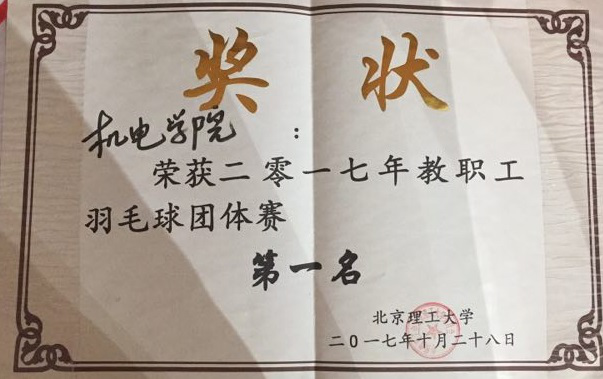 奖 状
机电学院：
荣获二零一七年教职工
羽毛球团体赛
第一名
北京理工大学
二0一七年十月二十八日